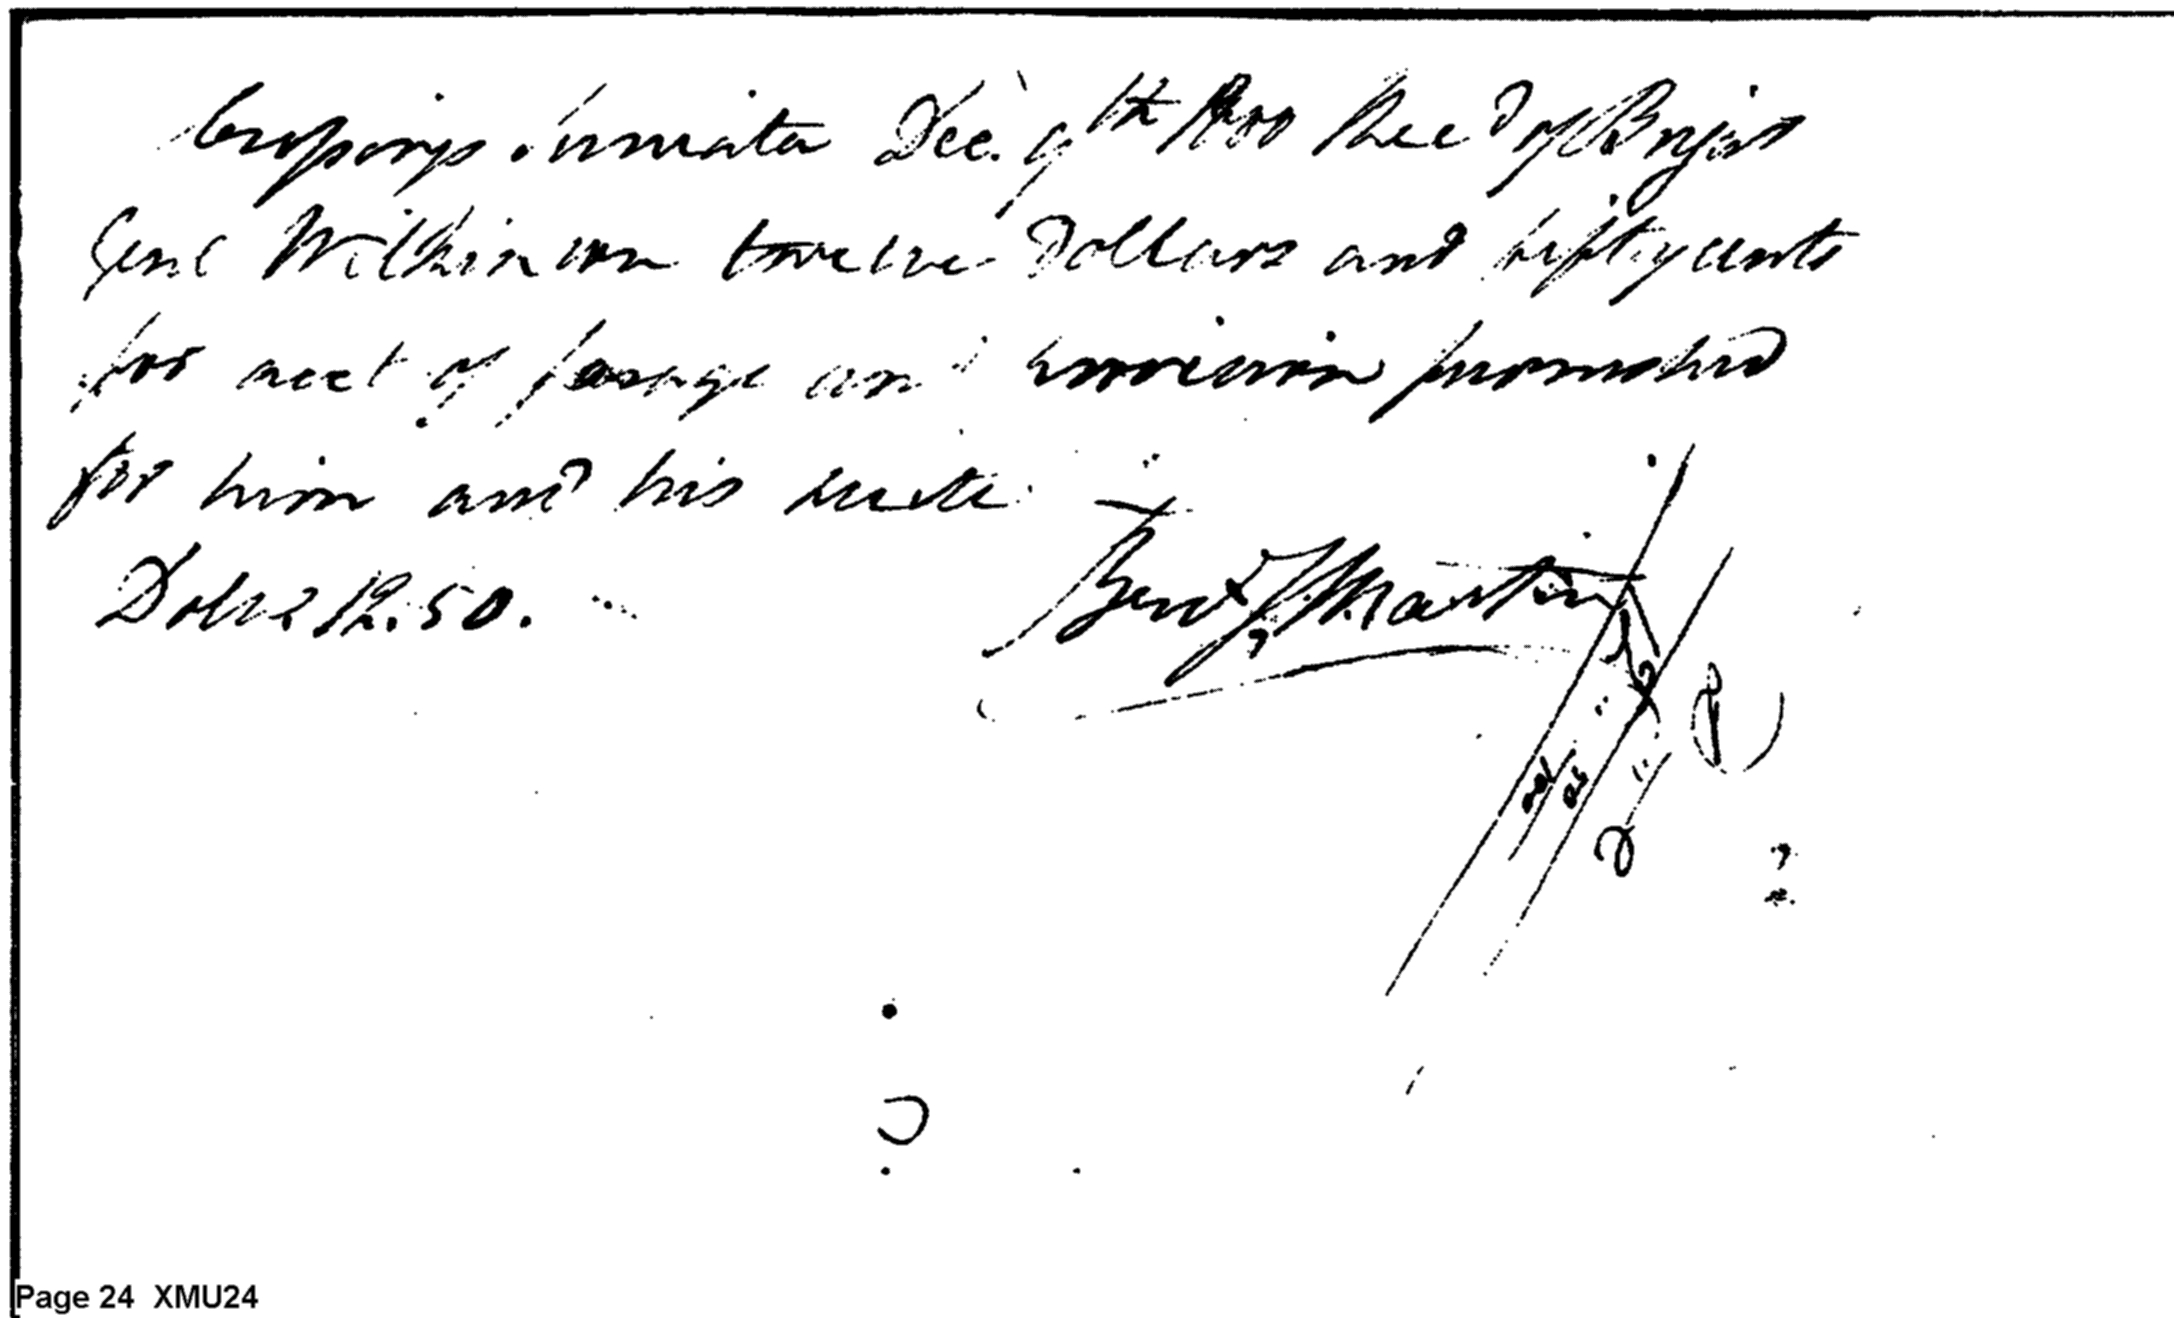 Crossings Juniata Dec. 9th 1800 Recd of Brigdr
Genl Wilkinson twelve Dollars and fifty cents
for acct of forage and provision furnished
for him and his suite
Dolrs 12.50. Benj. Martin
Page 24 XMU24